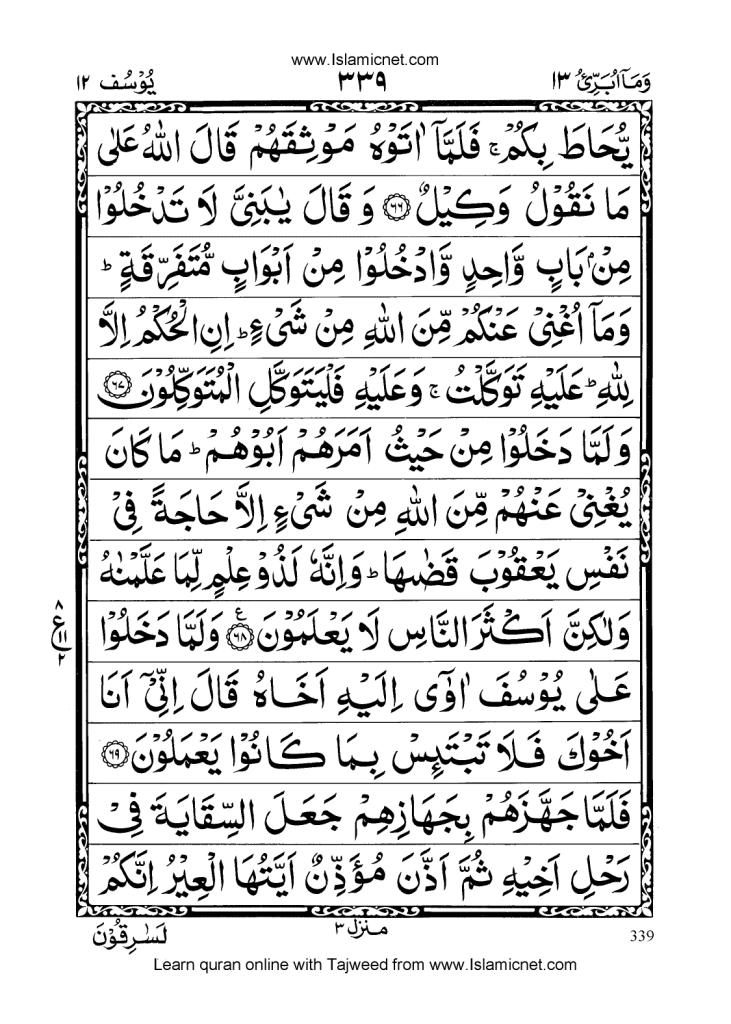 www.Islamicnet.com
وَمَآ اُبَرِّئُ ١٣ ٣٣٩ يُوْسُف ١٢
يُّحَاطَ بِكُمْ ۚ فَلَمَّآ اٰتَوْهُ مَوْثِقَهُمْ قَالَ اللّٰهُ عَلٰى
مَا نَقُوْلُ وَكِيْلٌ ﴿٦٦﴾ وَ قَالَ يٰبَنِىَّ لَا تَدْخُلُوْا
مِنْۢ بَابٍ وَّاحِدٍ وَّادْخُلُوْا مِنْ اَبْوَابٍ مُّتَفَرِّقَةٍ ؕ
وَمَآ اُغْنِىْ عَنْكُمْ مِّنَ اللّٰهِ مِنْ شَىْءٍ ؕ اِنِ الْحُكْمُ اِلَّا
لِلّٰهِ ؕ عَلَيْهِ تَوَكَّلْتُ ۚ وَعَلَيْهِ فَلْيَتَوَكَّلِ الْمُتَوَكِّلُوْنَ ﴿٦٧﴾
وَلَمَّا دَخَلُوْا مِنْ حَيْثُ اَمَرَهُمْ اَبُوْهُمْ ؕ مَا كَانَ
يُغْنِىْ عَنْهُمْ مِّنَ اللّٰهِ مِنْ شَىْءٍ اِلَّا حَاجَةً فِىْ
نَفْسِ يَعْقُوْبَ قَضٰىهَا ؕ وَاِنَّهٗ لَذُوْ عِلْمٍ لِّمَا عَلَّمْنٰهُ
وَلٰكِنَّ اَكْثَرَ النَّاسِ لَا يَعْلَمُوْنَ ﴿٦٨﴾ ع وَلَمَّا دَخَلُوْا
٨ ع ١١ ٢
عَلٰى يُوْسُفَ اٰوٰٓى اِلَيْهِ اَخَاهُ قَالَ اِنِّىْۤ اَنَا
اَخُوْكَ فَلَا تَبْتَئِسْ بِمَا كَانُوْا يَعْمَلُوْنَ ﴿٦٩﴾
فَلَمَّا جَهَّزَهُمْ بِجَهَازِهِمْ جَعَلَ السِّقَايَةَ فِىْ
رَحْلِ اَخِيْهِ ثُمَّ اَذَّنَ مُؤَذِّنٌ اَيَّتُهَا الْعِيْرُ اِنَّكُمْ
339 منزل ٣ لَسٰرِقُوْنَ
Learn quran online with Tajweed from www.Islamicnet.com